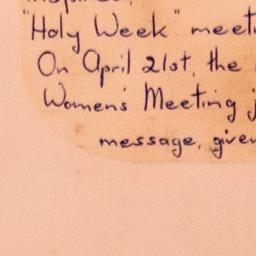 "Holy Week" meeti
On April 21st, the
Women's Meeting j
message, given